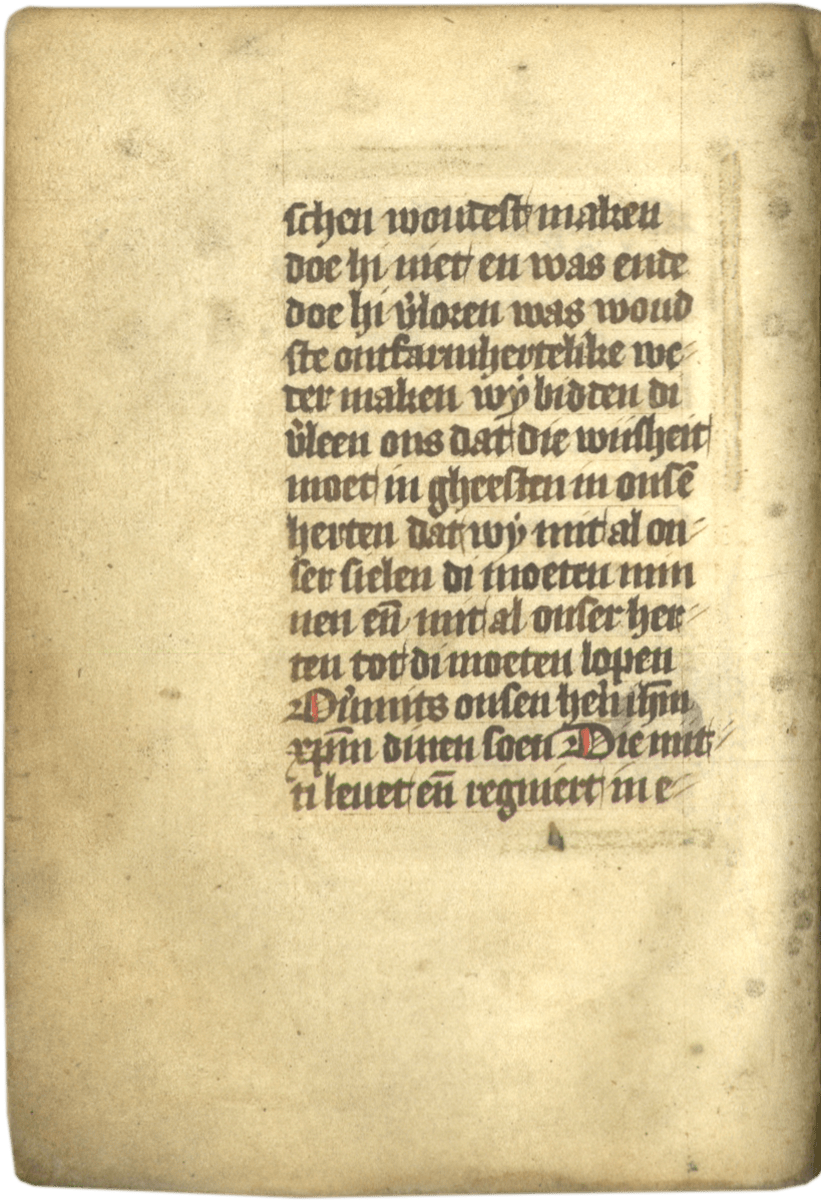 schen woudest maken
doe hi niet en was ende
doe hi v̉loren was woud
ste ontfarmhertelike we-
der maken wy̋ bidden di
v̉leen ons dat die wiisheit
moet in gheesten in onsē
herten dat wy̋ mit al on-
ser sielen di moeten min
nen en̄ mit al onser her-
ten tot di moeten lopen
Du̓mits onsen heh̓ ihm̄
xp̄m dinen soen Die mit-
ti leuet en̄ regniert in e-